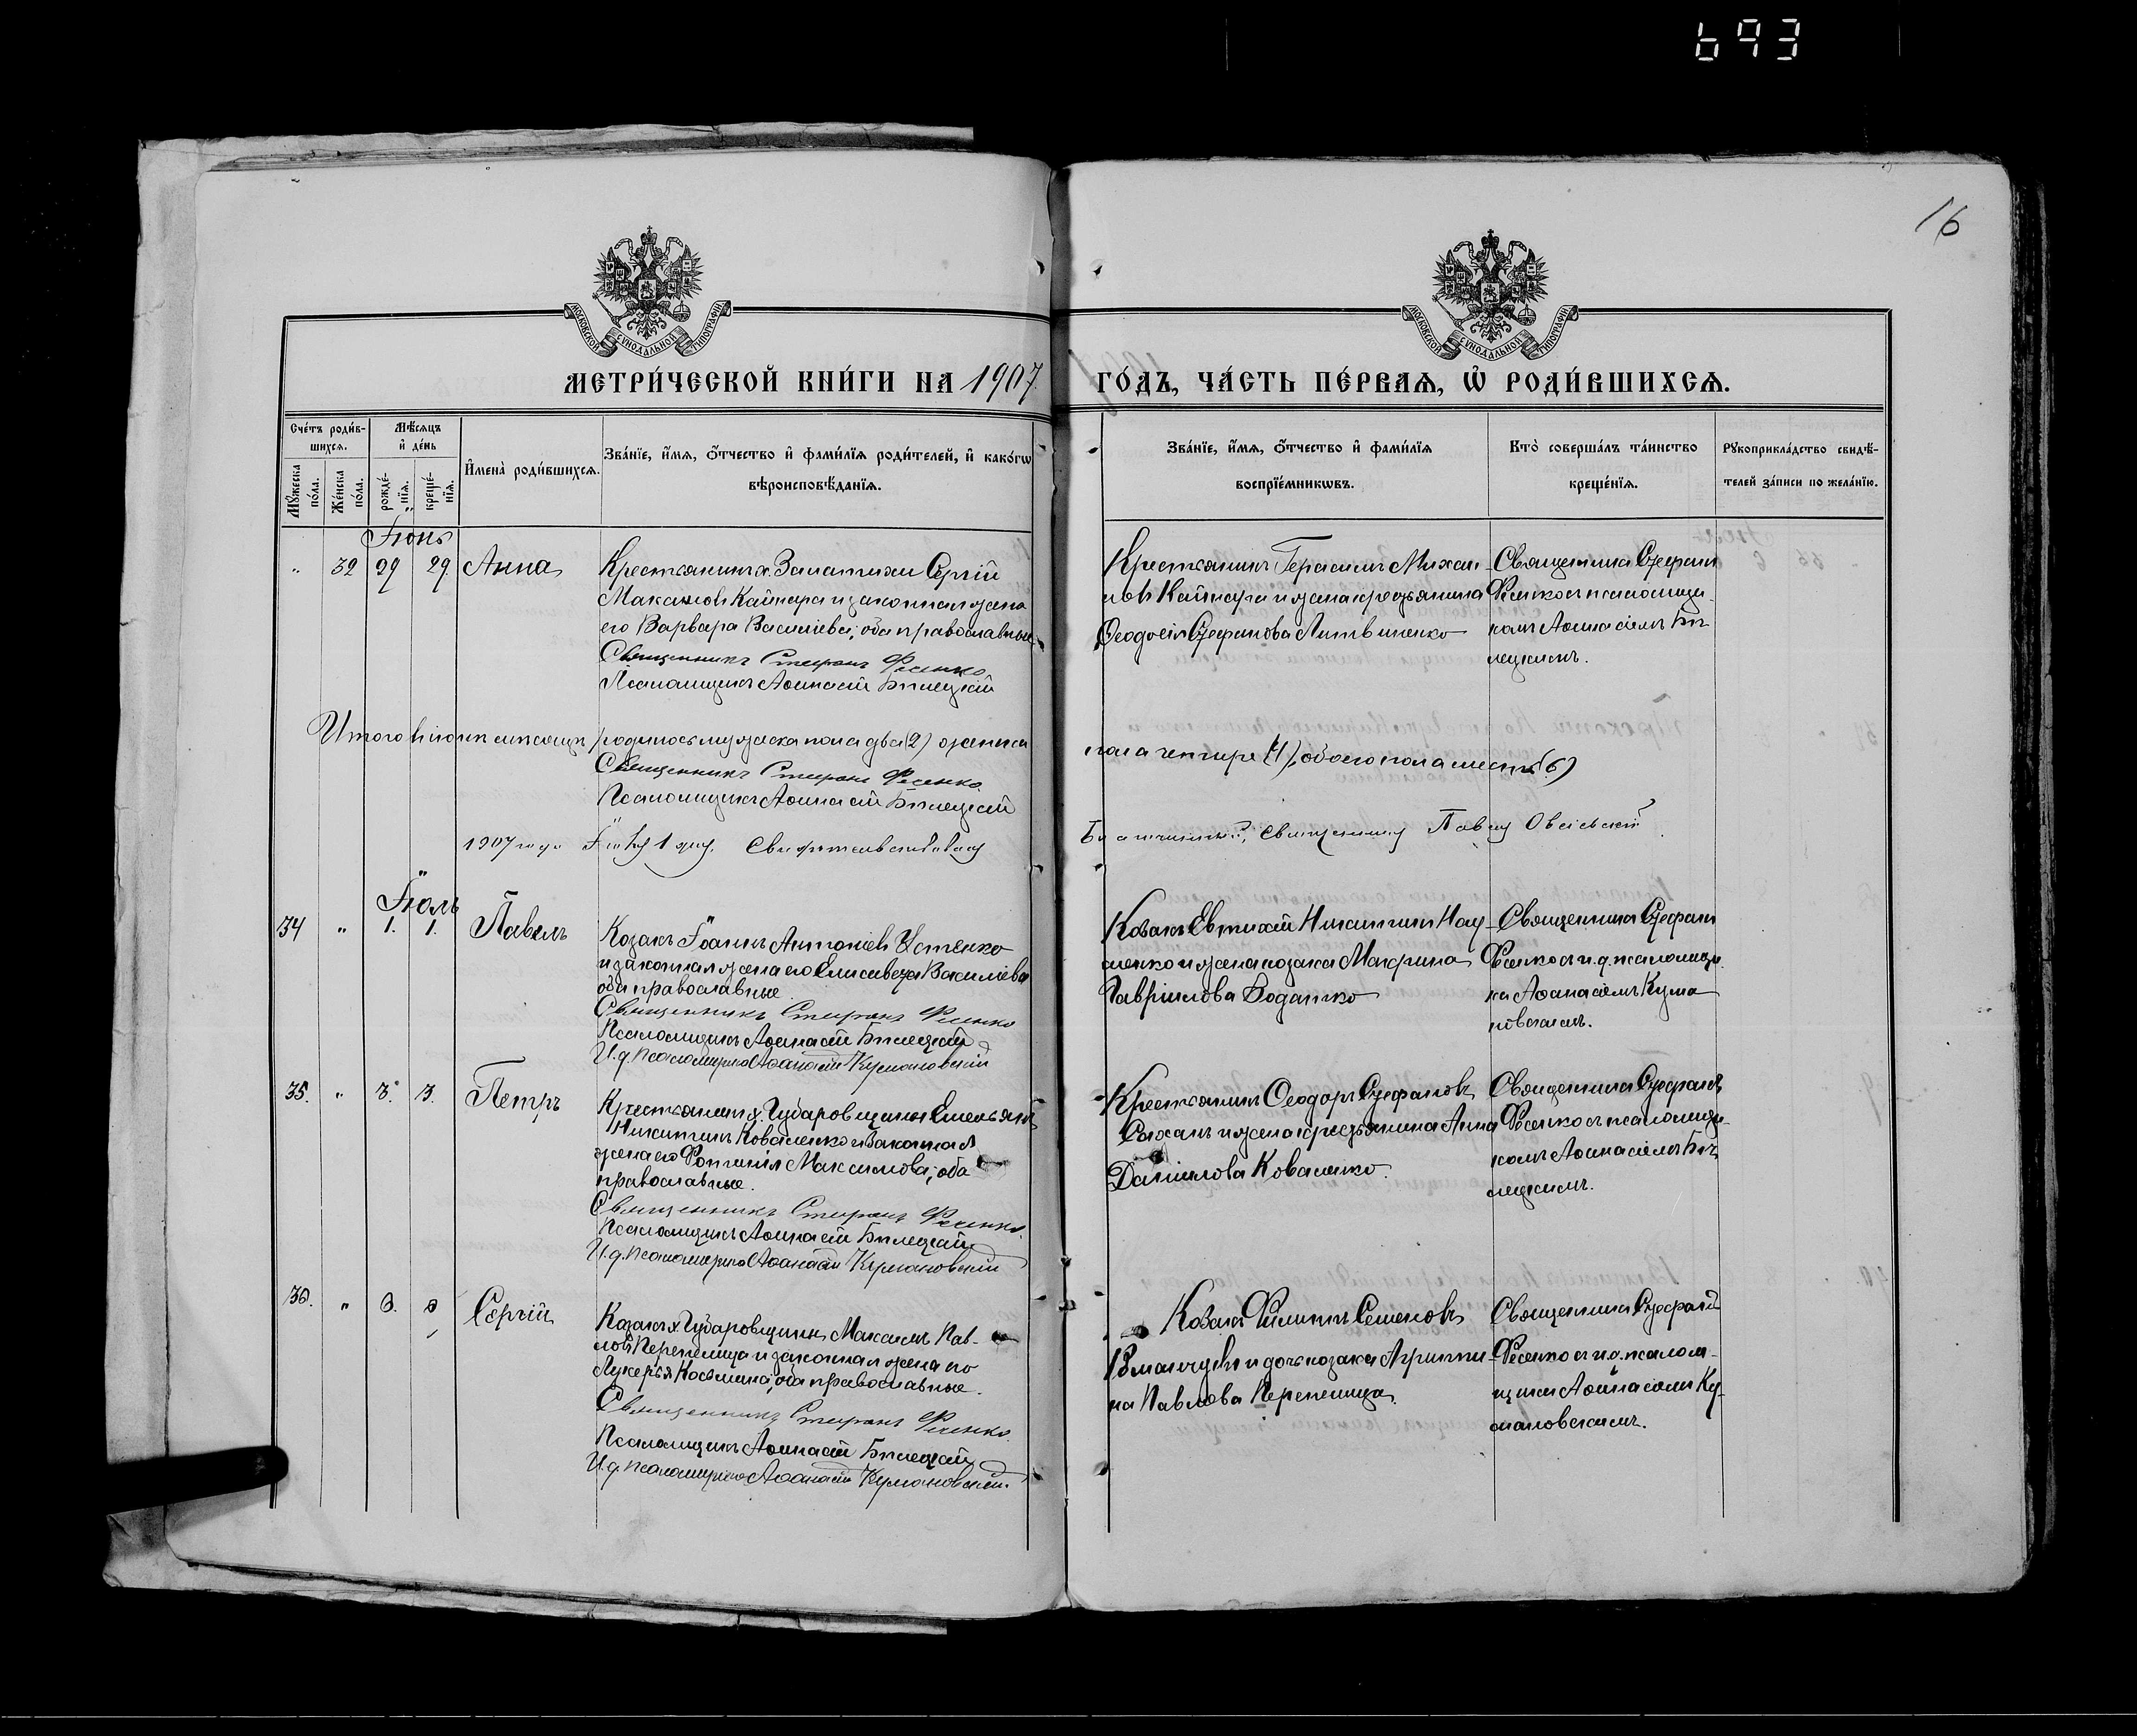 693
16
МОСКОВСКОЙ СУНОДАЛЬНОЙ ТИПОГРАФІИ
МОСКОВСКОЙ СУНОДАЛЬНОЙ ТИПОГРАФІИ
МЕТРИ́ЧЕСКОЙ КНИ́ГИ НА 1907
ГО́ДЪ, ЧА́СТЬ ПЕ́РВАѦ, Ѡ҆ РОДИ́ВШИХСѦ.
Сче́тъ роди́в-
шихсѧ.
Мꙋжеска по́ла.
Же́нска по́ла.
Мѣ́сѧцъ
и҆ де́нь
рожде́-
нїѧ.
креще́-
нїѧ.
И҆мена̀ роди́вшихсѧ.
Зва́нїе, и҆́мѧ, ѻ҆́тчество и҆ фами́лїѧ роди́телей, и҆ како́гѡ
вѣроисповѣ́данїѧ.
Зва́нїе, и҆́мѧ, ѻ҆́тчество и҆ фами́лїѧ
воспрїе́мникѡвъ.
Кто̀ соверша́лъ та́инство
креще́нїѧ.
Рꙋкоприкла́дство свидѣ́-
телей за́писи по жела́нїю.
Іюнь
" 32 29 29. Анна
Крестьянинъ х. Сергій
Максимовъ Кайнара и законная жена
его Варвара Василіева; оба православные
Священникъ Стефанъ Фесенко
Псаломщикъ Аѳанасій Билецкій
Крестьянинъ Герасимъ Михаи-
ловъ Кайнара и жена крестьянина
Ѳеодосія Стефанова Литвиненко
Священникъ Стефанъ
Фесенко съ псаломщи-
комъ Аѳанасіемъ Би-
лецкимъ.
Итого въ іюнѣ мѣсяцѣ родилось мужеска пола два (2) женска
пола четыре (4), обоего пола шесть (6)
Священникъ Стефанъ Фесенко
Псаломщикъ Аѳанасій Билецкій
1907 года Іюля 1 дня. Свидѣтельствовалъ
Благочинный, Священникъ Павелъ
Іюль
34 " 1. 1. Павелъ
Козакъ Іоаннъ Антоніевъ Устенко
и законная жена его Елисавета Василіева
оба православные.
Священникъ Стефанъ Фесенко
Псаломщикъ Аѳанасій Билецкій
И. д. псаломщика Аѳанасій Кумановскій
Козакъ Евтихій Никитинъ Нау-
менко и жена козака Макрина
Гавріилова Водашко
Священникъ Стефанъ
Фесенко съ и. д. псаломщи-
ка Аѳанасіемъ Кума-
новскимъ.
35. " 3. 3. Петръ
Крестьянинъ х. Губаровщины Емельянъ
Никитинъ Коваленко и законная
жена его Фотинія Максимова; оба
православные.
Священникъ Стефанъ Фесенко.
Псаломщикъ Аѳанасій Билецкій
И. д. псаломщика Аѳанасій Кумановскій
Крестьянинъ Ѳеодоръ Стефановъ
и жена крестьянина Анна
Даніилова Коваленко.
Священникъ Стефанъ
Фесенко съ псаломщи-
комъ Аѳанасіемъ Би-
лецкимъ.
36. " Сергій
Козакъ х. Губаровщины Максимъ Пав-
ловъ Перепелица и законная жена его
Лукерья Косьмина; оба православные.
Священникъ Стефанъ Фесенко.
Псаломщикъ Аѳанасій Билецкій
И. д. псаломщика Аѳанасій Кумановскій
Козакъ Филиппъ Семеновъ
и дочь козака Агриппи-
на Павлова Перепелица.
Священникъ Стефанъ
Фесенко съ и. д. псалом-
щика Аѳанасіемъ Ку-
мановскимъ.